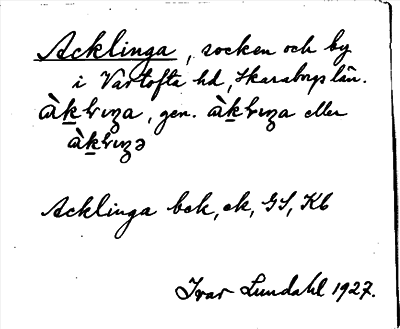 Acklinga, socken och by
i Vartofta hd, Skaraborgs län.
àk̲lıŋa, gen. àk̲lıŋa eller
àk̲lıŋə
Acklinga bck, ek, GS, Kb
Ivar Lundahl 1927.